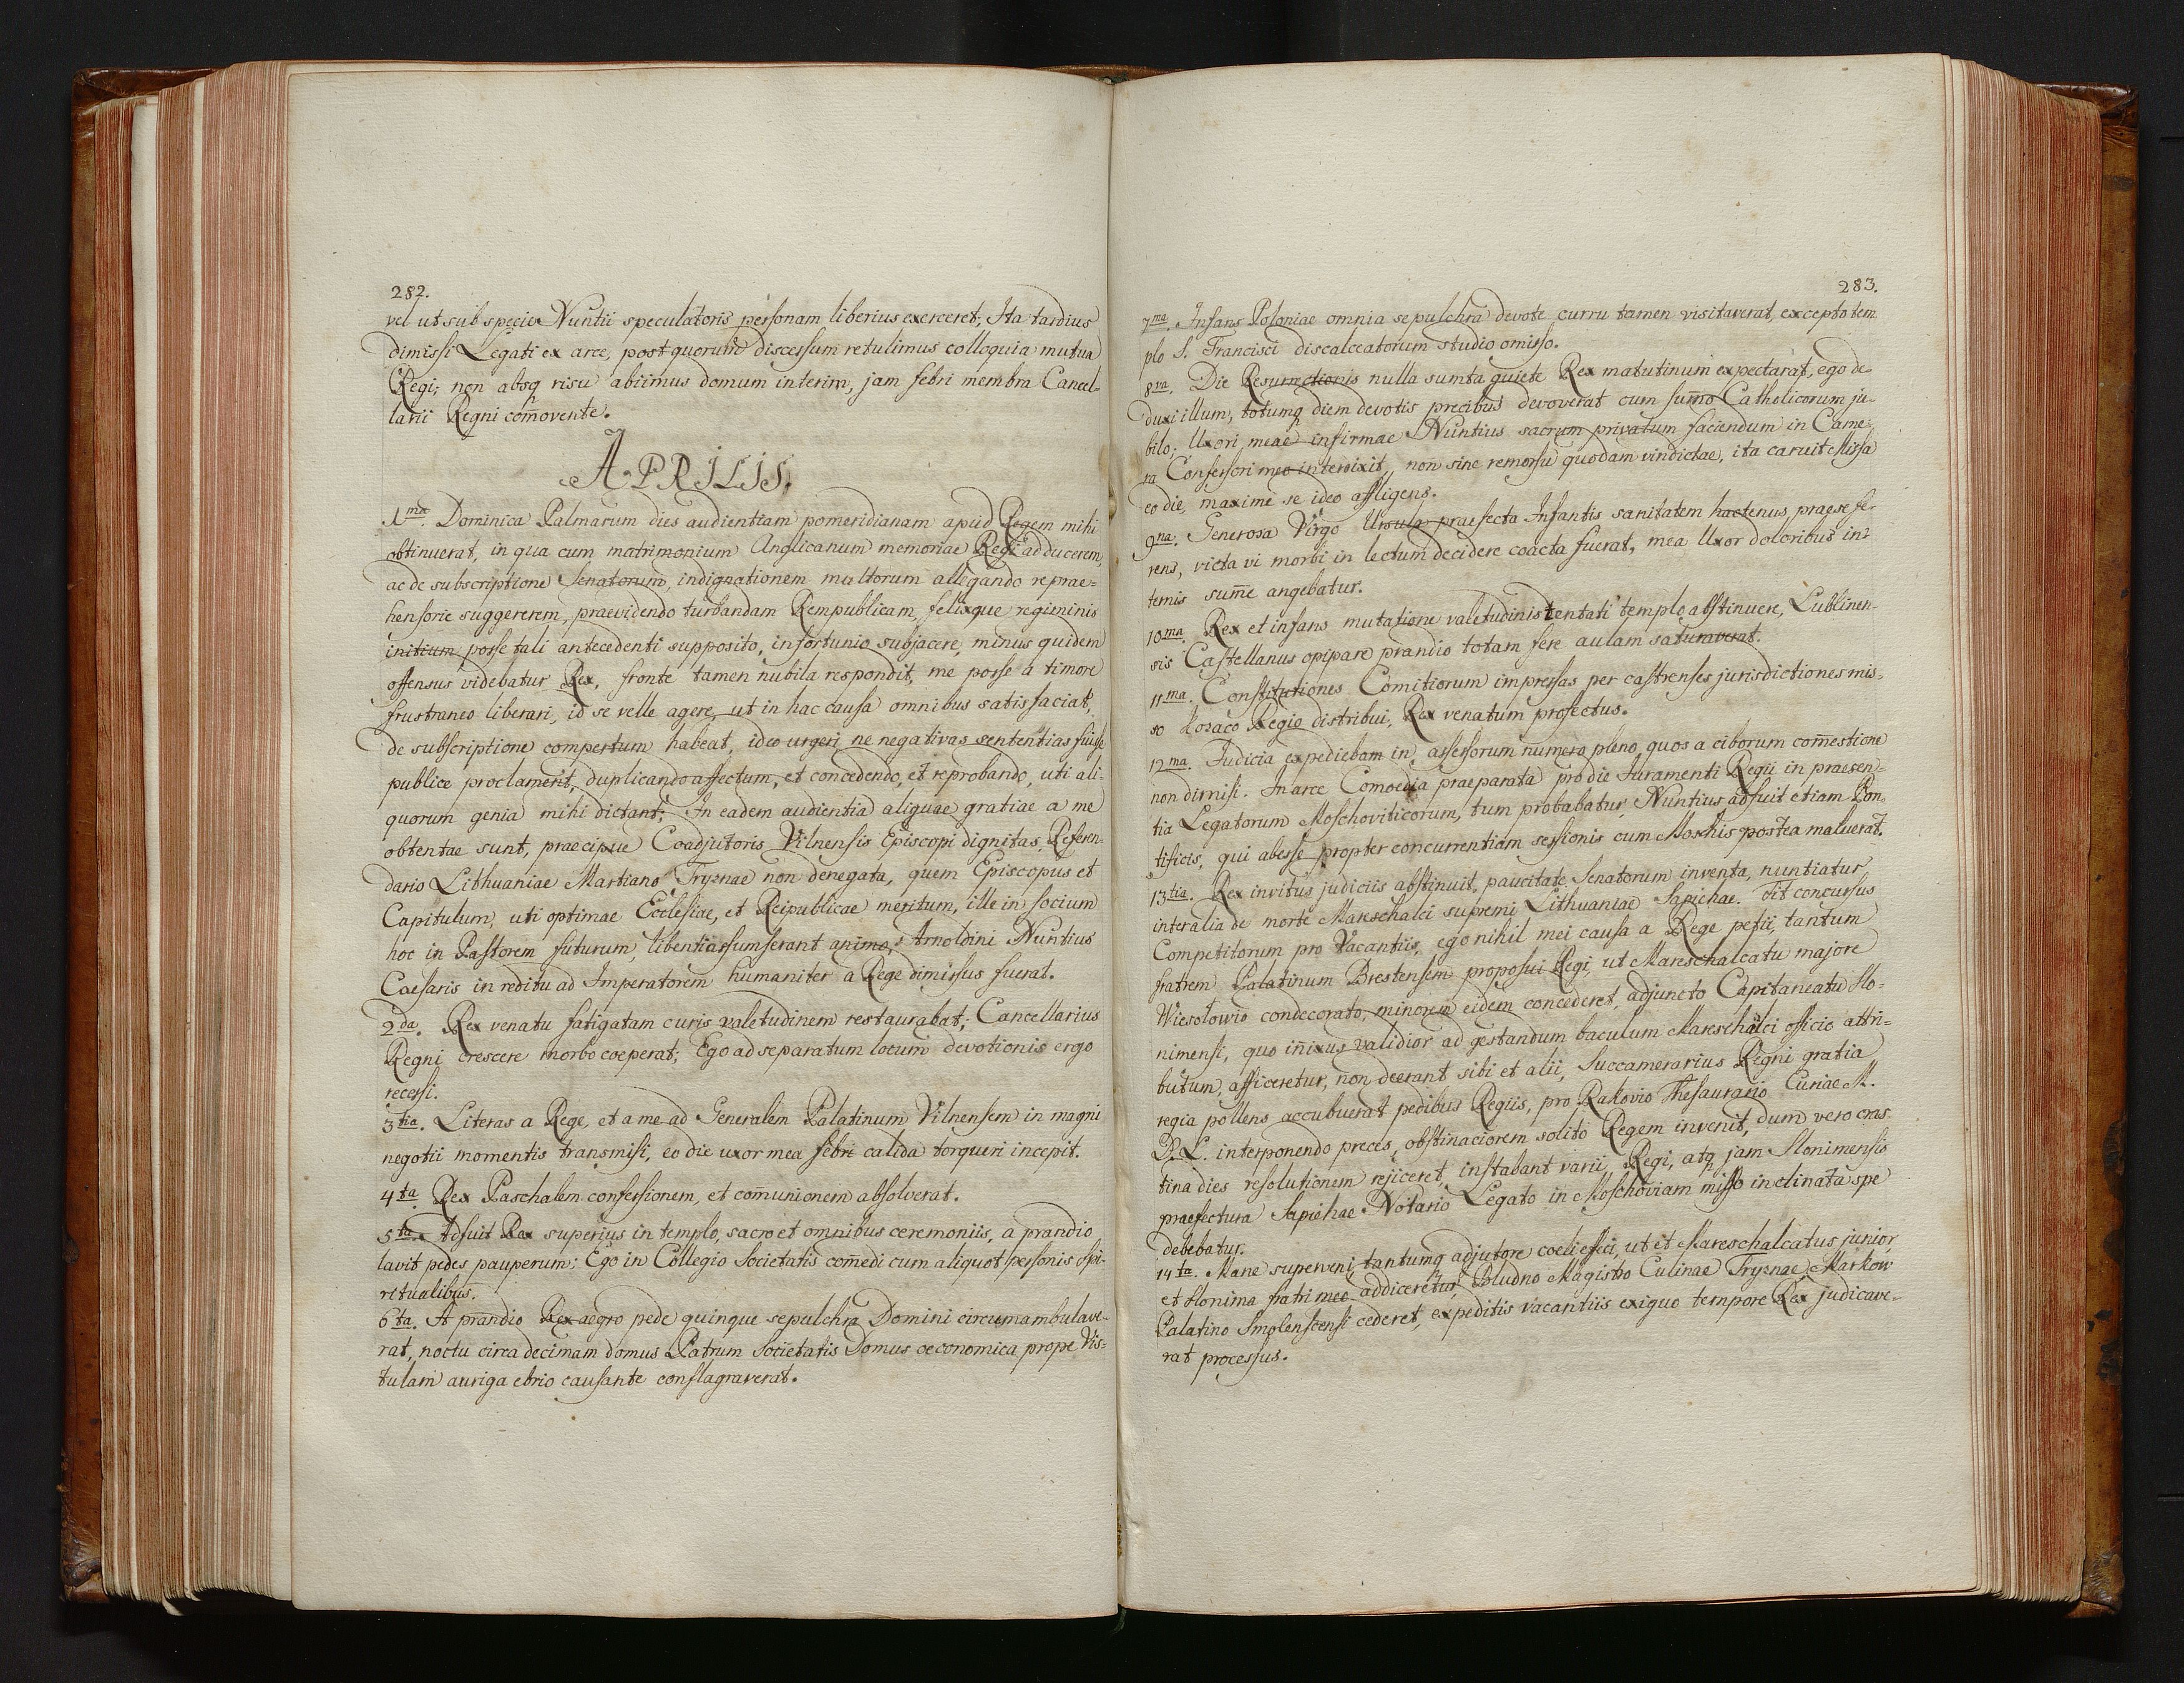 282.
vel ut sub specie Nuntii speculatoris personam liberius exerceret; Ita tardius
dimissi Legati ex arce, post quorum discessum retulimus colloquia mutua
Regi; non absq risu abiimus domum interim, jam febri membra Cancel-
larii Regni com̄ovente.
APRILIS.
1ma. Dominica Palmarum dies audientiam pomeridianam apud Regem mihi
obtinuerat, in qua cum matrimonium Anglicanum memoriae Regi adducerem,
ac de subscriptione Senatorum, indignationem multorum allegando reprae=
hensorie suggererem, praevidendo turbandam Rempublicam, felixque regiminis
initium posse tali antecedenti supposito, infortunio subjacere, minus quidem
offensus videbatur Rex, fronte tamen nubila respondit, me posse a timore
frustraneo liberari, id se velle agere, ut in hac causa omnibus satisfaciat,
de subscriptione compertum habeat, ideo urgeri ne negativas sententias fuisse
publice proclament, duplicando affectum, et concedendo, et reprobando, uti ali-
quorum genia mihi dictant; In eadem audientia aliquae gratiae a me
obtentae sunt, praecipue Coadjutoris Vilnensis Episcopi dignitas, Referen-
dario Lithuaniae Martiano Tryznae non denegata, quem Episcopus et
Capitulum, uti optimae Ecclesiae, et Reipublicae meritum, ille in socium
hoc in Pastorem futurum, libenti assumserant animo, Arnoldini Nuntius
Caesaris in reditu ad Imperatorem humaniter a Rege dimissus fuerat.
2da. Rex venatu fatigatam curis valetudinem restaurabat; Cancellarius
Regni crescere morbo coeperat; Ego ad separatum locum devotionis ergo
recessi.
3tia. Literas a Rege, et a me ad Generalem Palatinum Vilnensem in magni
negotii momentis transmisi, eo die uxor mea febri calida torqueri incepit.
4ta. Rex Paschalem confessionem, et com̄unionem absolverat.
5ta. Adfuit Rex superius in templo, sacro et omnibus ceremoniis, a prandio
lavit pedes pauperum: Ego in Collegio Societatis com̄edi cum aliquot personis Spi-
ritualibus.
6ta. A prandio Rex aegro pede quinque sepulchra Domini circumambulave-
rat, noctu circa decimam domus Patrum Societatis Domus oeconomica prope Vis=
tulam auriga ebrio causante conflagraverat.
283.
7ma. Infans Poloniae omnia sepulchra devote curru tamen visitaverat, excepto tem
plo S. Francisci discalceatorum studio omisso.
8va. Die Resurrectionis nulla sumta quiete Rex matutinum expectarat, ego de-
duxi illum, totumq diem devotis precibus devoverat cum sum̄o Catholicorum ju-
bilo; Uxori meae infirmae Nuntius sacrum privatum faciendum in Came-
ra Confessori meo interdixit, non sine remorsu quodam vindictae, ita caruit Missa
eo die, maxime se ideo affligens.
9na. Generosa Virgo Ursula praefecta Infantis sanitatem hactenus praesefe-
rens, victa vi morbi in lectum decidere coacta fuerat, mea Uxor doloribus in-
ternis sum̄e angebatur.
10ma. Rex et infans mutatione valetudinis tentati templo abstinuere, Lublinen-
sis Castellanus opiparo prandio totam fere aulam saturaverat.
11ma. Constitutiones Comitiorum impressas per castrenses jurisdictiones mis-
so Kozaco Regio distribui, Rex venatum profectus.
12ma. Judicia expediebam in assessorum numero pleno, quos a ciborum com̄estione
non dimisi. In arce Comoedia praeparata pro die Juramenti Regii in praesen-
tia Legatorum Moschoviticorum, tum probabatur, Nuntius adfuit etiam Pon-
tificis, qui abesse propter concurrentiam sessionis cum Moshis postea maluerat.
13tia. Rex invitus judiciis abstinuit, paucitate Senatorum inventa, nuntiatur
inter alia de morte Mareschalci supremi Lithuaniae Sapiehae. Fit concursus
Competitorum pro Vacantiis, ego nihil mei causa a Rege petii, tantum
fratrem Palatinum Brestensem proposui Regi, ut Mareschalcatu majore
Wiesołowio condecorato, minorem eidem concederet, adjuncto Capitaneatu Slo-
nimensi, quo in̄ixus validior ad gestandum baculum Mareschalci officio attri-
butum, afficeretur, non deerant sibi et alii, Succamerarius Regni gratia
regia pollens accubuerat pedibus Regiis, pro Rakovio Thesaurario Curiae M.
D. L. interponendo preces, obstinaciorem solito Regem invenit, dum vero cras
tina dies resolutionem rejiceret, instabant varii, Regi, atq jam Slonimensis
praefectura Sapiehae Notario Legato in Moschoviam misso inclinata spe
debebatur.
14ta. Mane superveni, tantumq adjutore coeli effici, ut et Mareschalcatus junior
et Slonima fratri meo addiceretur, Bludno Magistro Culinae Tryznae, Markow
Palatino Smolenscensi cederet, expeditis vacantiis exiguo tempore Rex judicave-
rat processus.